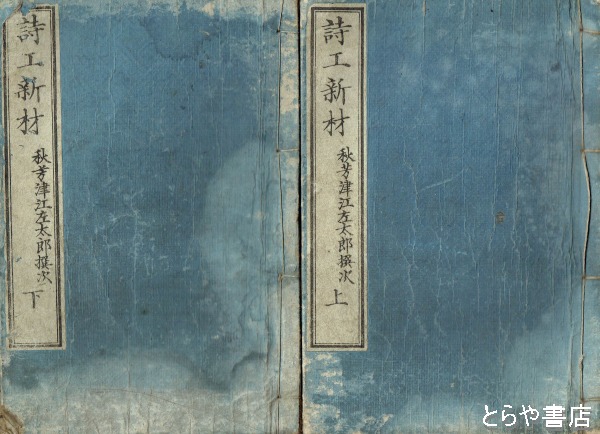 詩工新材
秋芳津江左太郎撰次
上
詩工新材
秋芳津江左太郎撰次
下
とらや書店